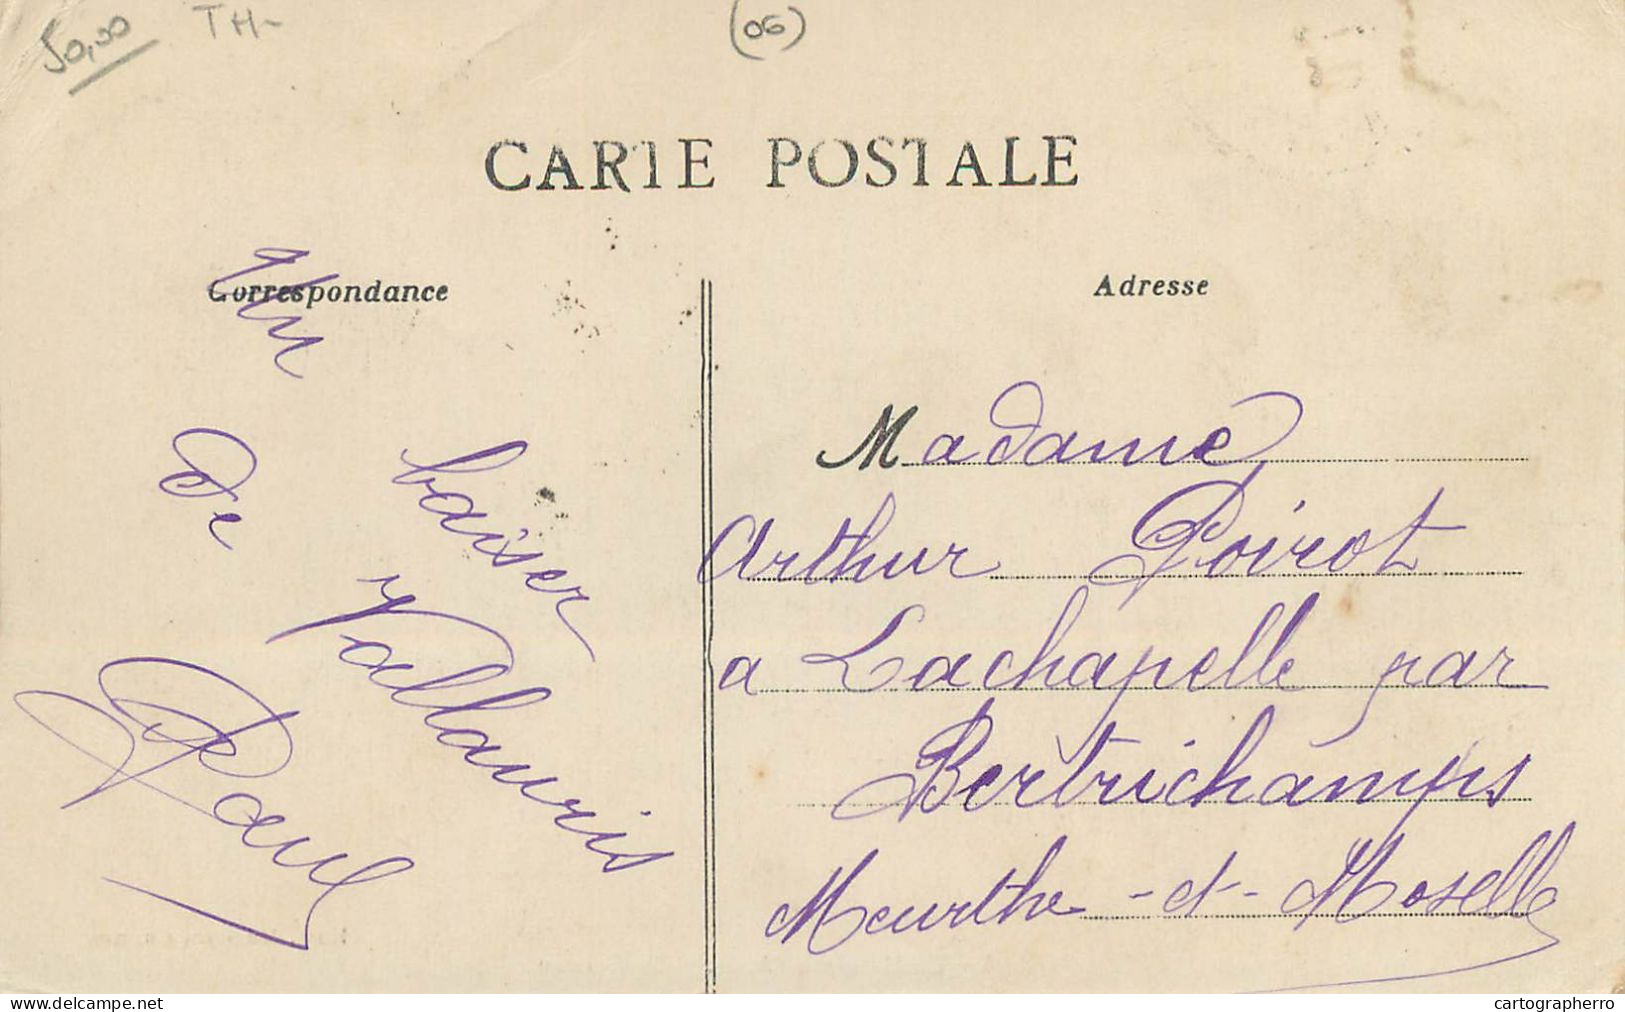 50,00
TH-
(06)
CARTE POSTALE
Correspondance
Adresse
Un
baiser
de
Vallauris
Paul
Madame
Arthur Poirot
a Lachapelle par
Bertrichamps
Meurthe-et-Moselle
www.delcampe.net
cartographerro